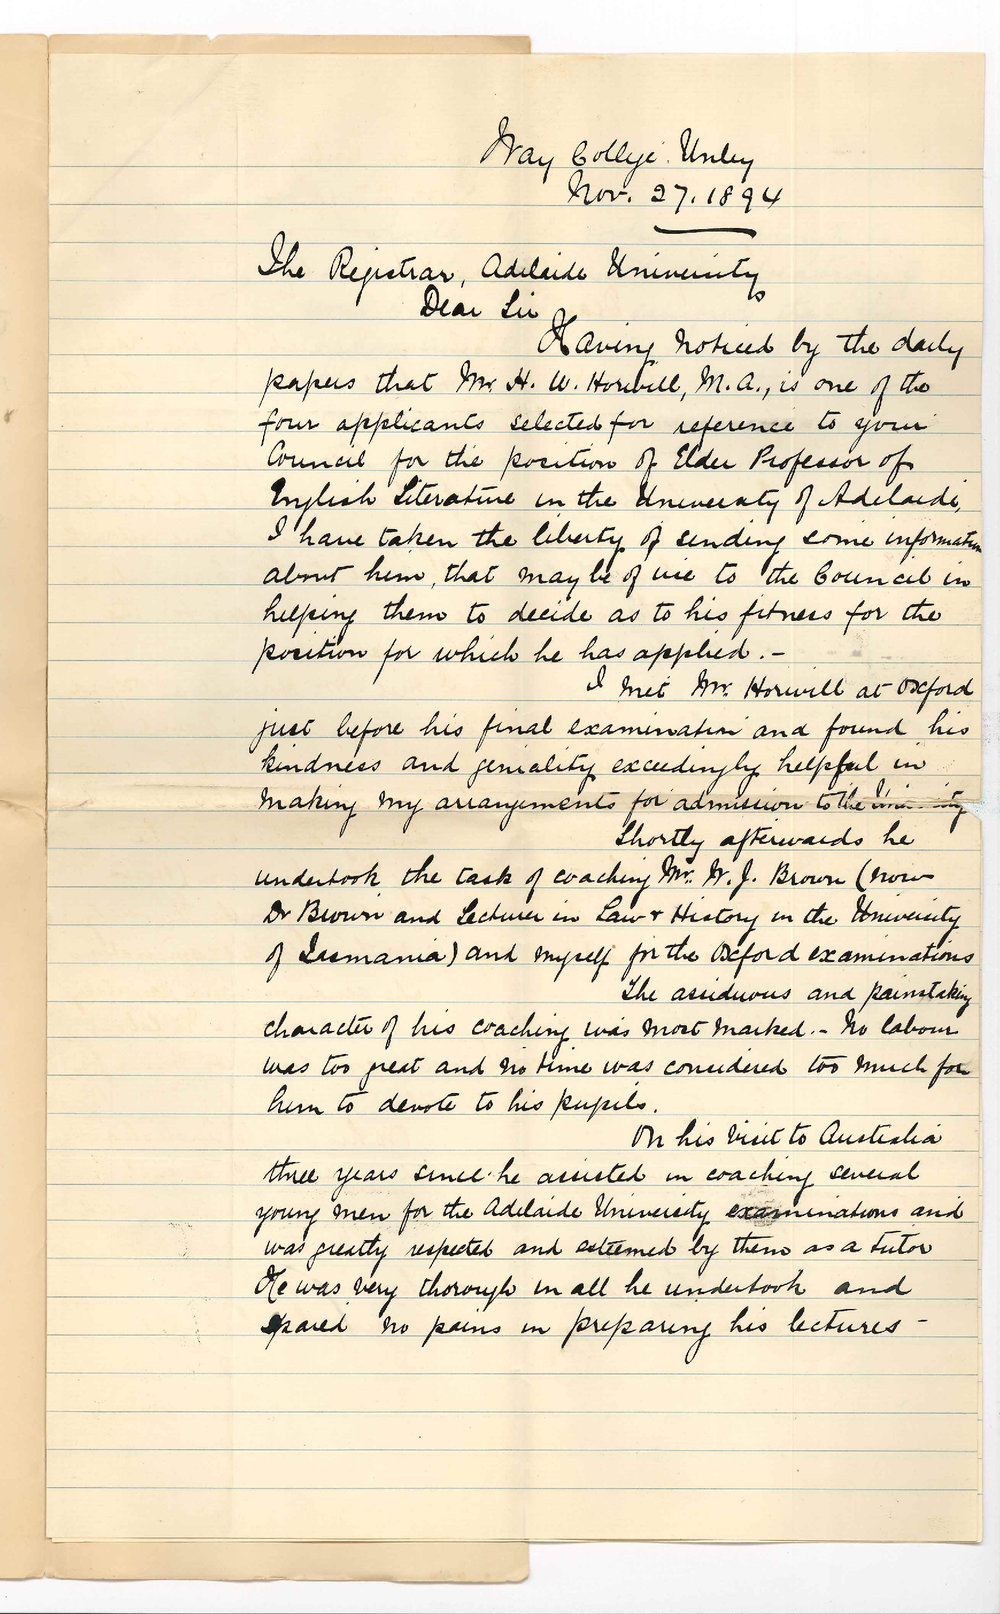 Way College. Unley
Nov. 27. 1894
The Registrar, Adelaide University
Dear Sir
Having noticed by the daily
papers that Mr. H. W. Horwill, M.A., is one of the
four applicants selected for reference to your
Council for the position of Elder Professor of
English Literature in the University of Adelaide,
I have taken the liberty of sending some information
about him, that may be of use to the Council in
helping them to decide as to his fitness for the
position for which he has applied. –
I met Mr. Horwill at Oxford
just before his final examination and found his
kindness and geniality exceedingly helpful in
making my arrangements for admission to the University
Shortly afterwards he
undertook the task of coaching Mr. W. J. Brown (now
Dr Brown and Lecturer in Law & History in the University
of Tasmania) and myself for the Oxford examinations
The assiduous and painstaking
character of his coaching was most marked. – No labour
was too great and no time was considered too much for
him to devote to his pupils.
On his visit to Australia
three years since he assisted in coaching several
young men for the Adelaide University examinations and
was greatly respected and esteemed by them as a tutor
He was very thorough in all he undertook and
spared no pains in preparing his lectures –